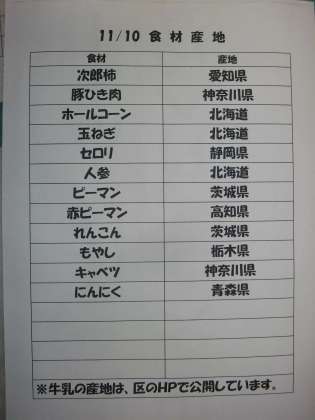 11/10 食材産地
食材 産地
次郎柿 愛知県
豚ひき肉 神奈川県
ホールコーン 北海道
玉ねぎ 北海道
セロリ 静岡県
人参 北海道
ピーマン 茨城県
赤ピーマン 高知県
れんこん 茨城県
もやし 栃木県
キャベツ 神奈川県
にんにく 青森県
※牛乳の産地は、区のHPで公開しています。